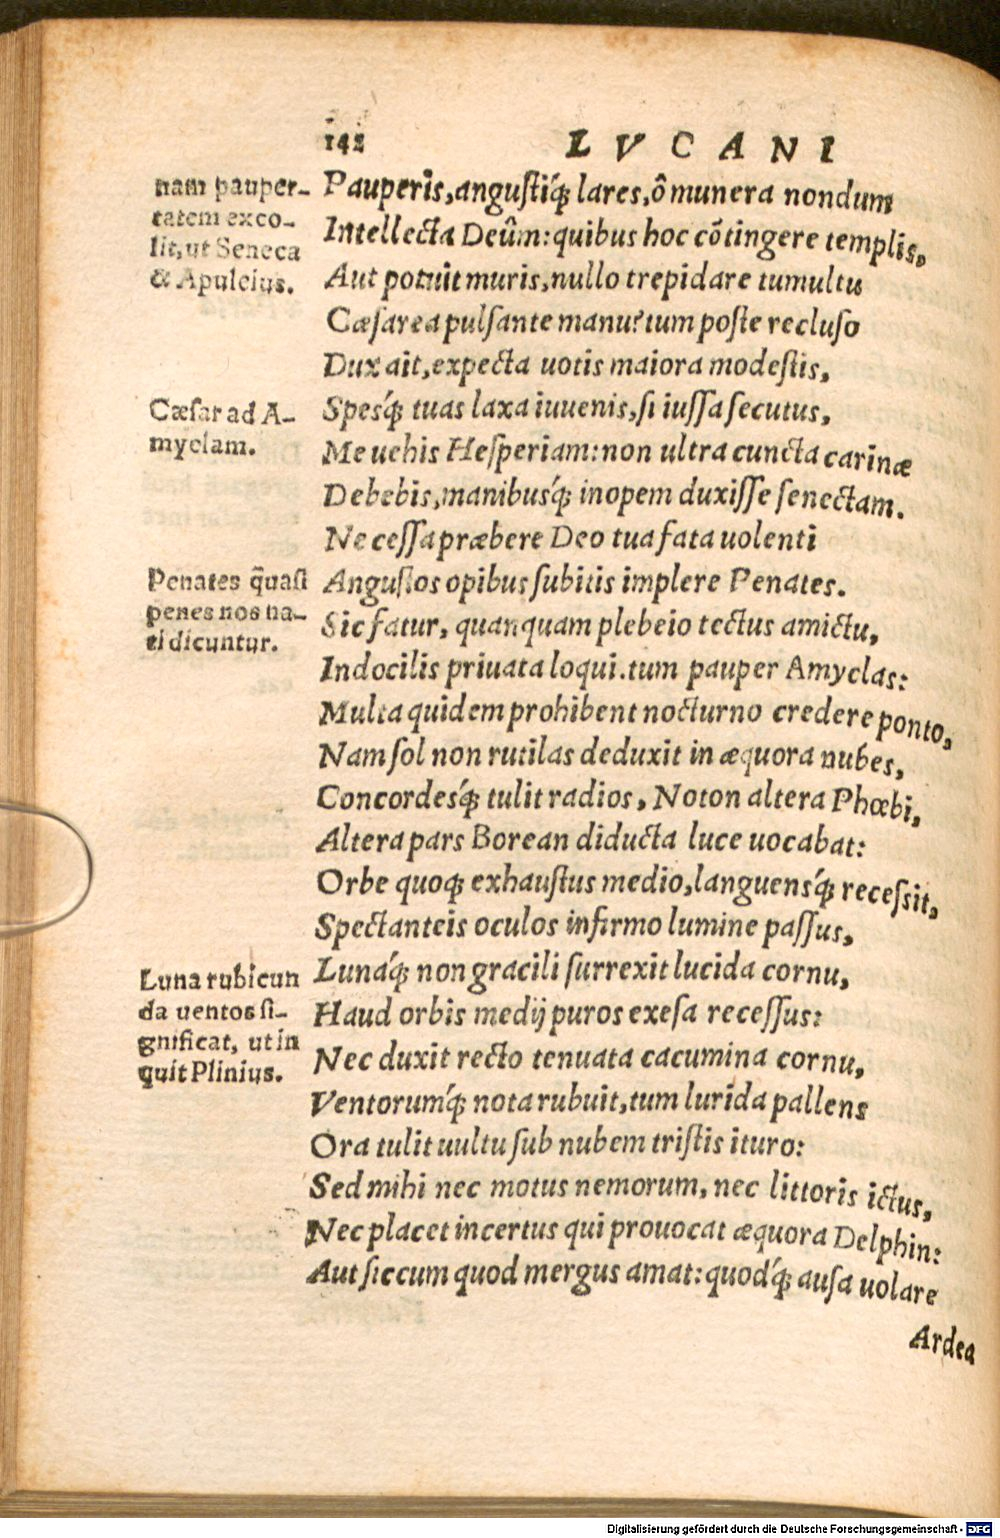 142 LVCANI
nam pauper-
tatem exco-
lit, ut Seneca
& Apuleius.
Pauperis, angustiq́ꝫ lares, ô munera nondum
Intellecta Deûm: quibus hoc cōtingere templis,
Aut potuit muris, nullo trepidare tumultu
Cæsarea pulsante manu? tum poste recluso
Dux ait, expecta uotis maiora modestis,
Cæsar ad A-
myclam.
Spesq́ꝫ tuas laxa iuuenis, si iussa secutus,
Me uehis Hesperiam: non ultra cuncta carinæ
Debebis, manibusq́ꝫ inopem duxisse senectam.
Ne cessa præbere Deo tua fata uolenti
Penates q̃uasi
penes nos na-
ti dicuntur.
Angustos opibus subitis implere Penates.
Sic fatur, quanquam plebeio tectus amictu,
Indocilis priuata loqui. tum pauper Amyclas:
Multa quidem prohibent nocturno credere ponto,
Nam sol non rutilas deduxit in æquora nubes,
Concordesq́ꝫ tulit radios, Noton altera Phœbi,
Altera pars Borean diducta luce uocabat:
Orbe quoqꝫ exhaustus medio, languensq́ꝫ recessit,
Spectanteis oculos infirmo lumine passus,
Luna rubicun
da uentos si-
gnificat, ut in
quit Plinius.
Lunáq́ꝫ non gracili surrexit lucida cornu,
Haud orbis medij puros exesa recessus:
Nec duxit recto tenuata cacumina cornu,
Ventorumq́ꝫ nota rubuit, tum lurida pallens
Ora tulit uultu sub nubem tristis ituro:
Sed mihi nec motus nemorum, nec littoris ictus,
Nec placet incertus qui prouocat æquora Delphin:
Aut siccum quod mergus amat: quodq́ꝫ ausa uolare
Ardea
Digitalisierung gefördert durch die Deutsche Forschungsgemeinschaft - DFG